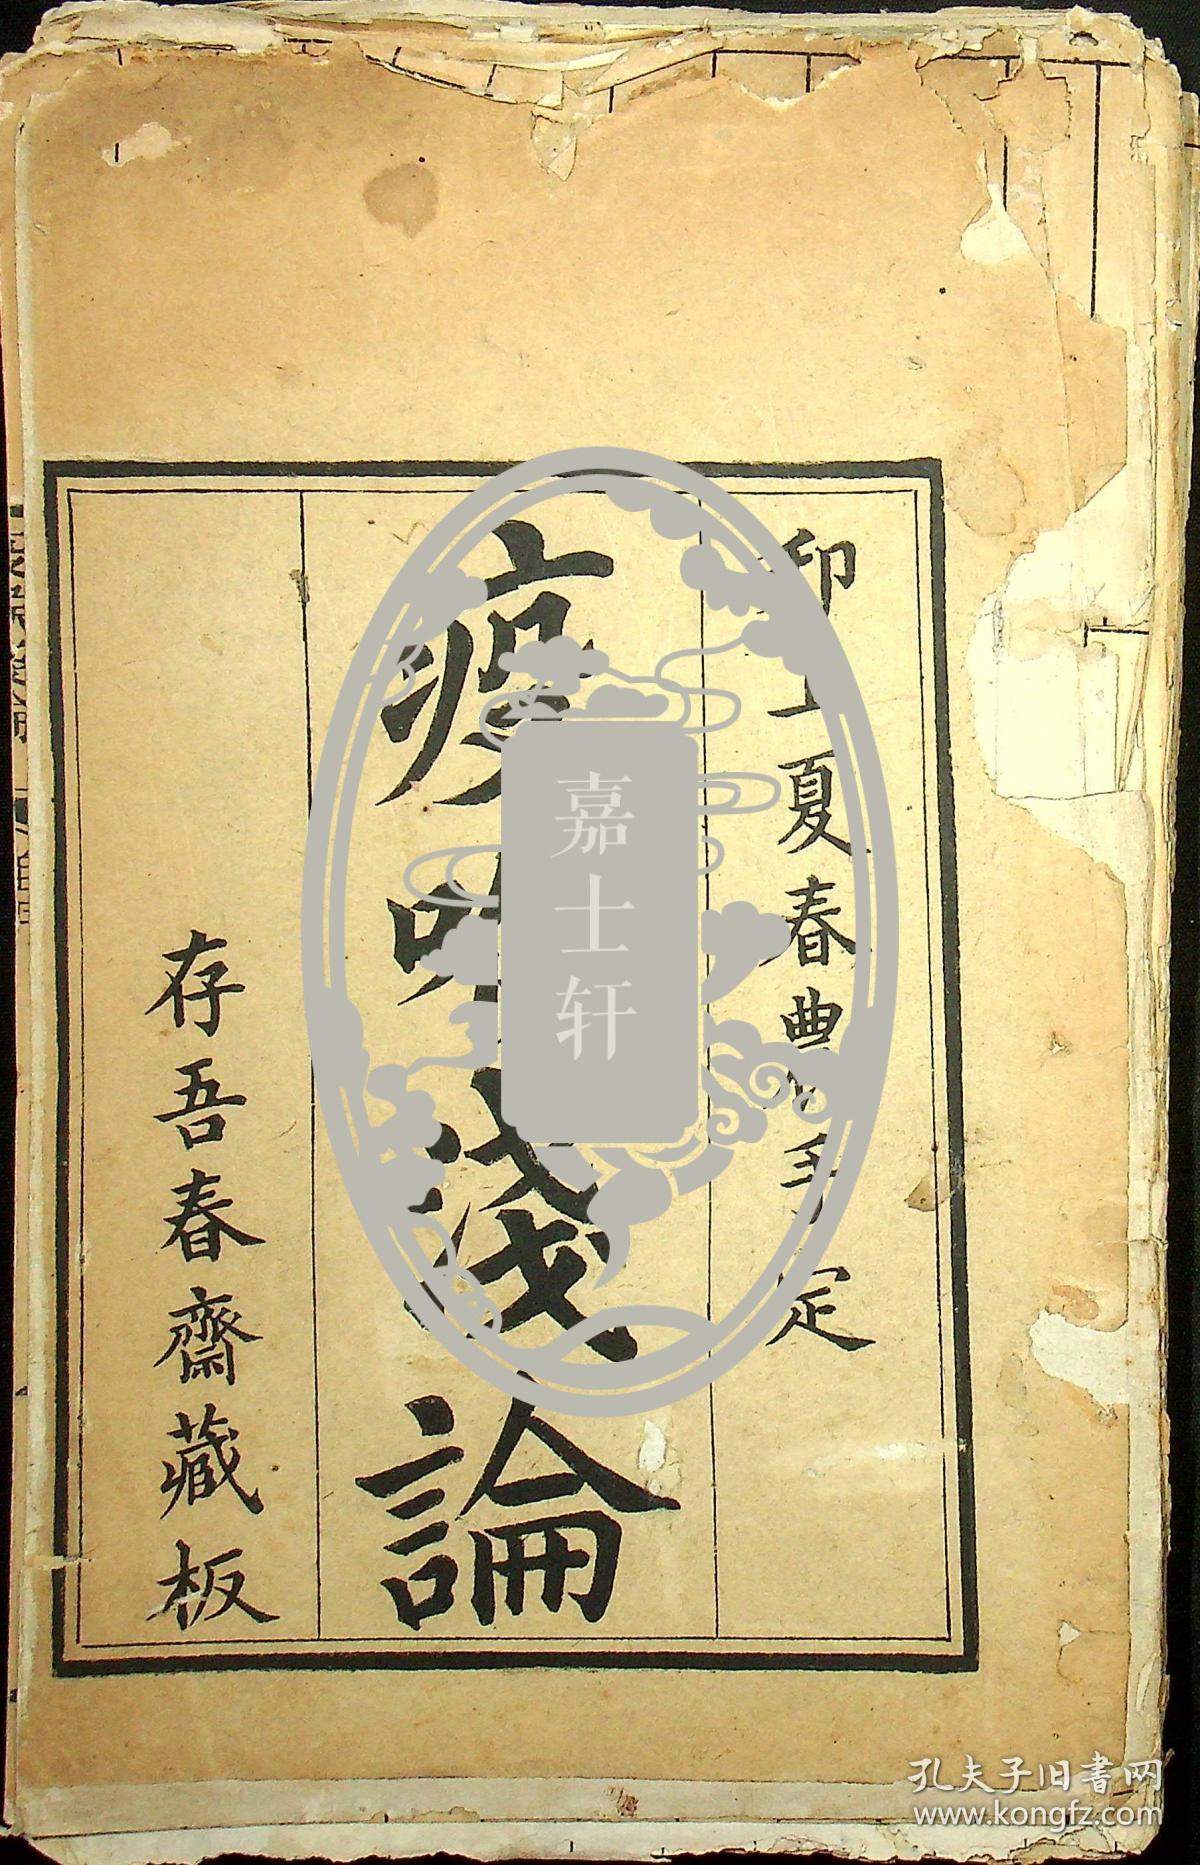 卭上夏春農手定
疫喉淺論
存吾春齋藏板
嘉士轩
孔夫子旧書网
www.kongfz.com